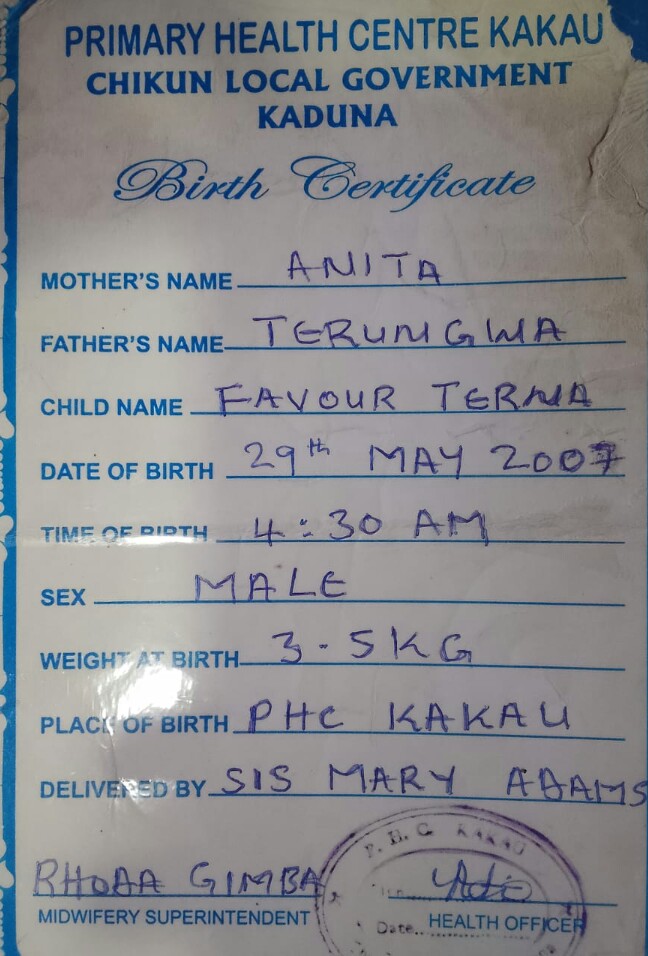 PRIMARY HEALTH CENTRE KAKAU
CHIKUN LOCAL GOVERNMENT
KADUNA
Birth Certificate
MOTHER'S NAME ANITA
FATHER'S NAME TERUNGWA
CHILD NAME FAVOUR TERNA
DATE OF BIRTH 29th MAY 2007
TIME OF BIRTH 4:30 AM
SEX MALE
WEIGHT AT BIRTH 3-5KG
PLACE OF BIRTH PHC KAKAU
DELIVERED BY SIS MARY ADAMS
P.H.C KAKAU
RHODA GIMBA
MIDWIFERY SUPERINTENDENT
Date..
HEALTH OFFICER